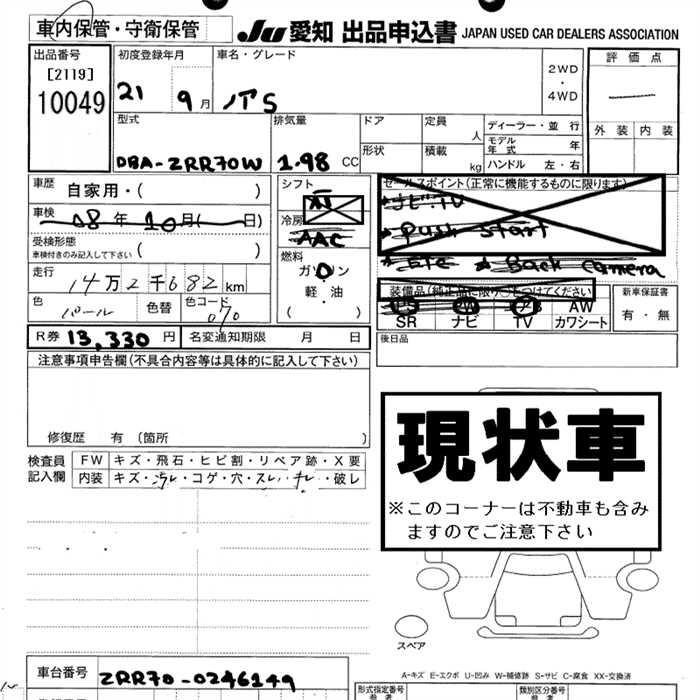 車内保管・守衛保管 JU 愛知 出品申込書 JAPAN USED CAR DEALERS ASSOCIATION
出品番号
[2119]
10049
初度登録年月
21 9月
車名・グレード
ノア S
2WD
・
4WD
評価点
外装 内装
型式
DBA-ZRR70W
排気量
1.98 CC
ドア
形状
定員 人
積載 kg
ディーラー・並 行
モデル年式 年
ハンドル 左・右
車歴 自家用・( )
車検 08年 10月( 日)
受検形態
車検付きのみ記入して下さい ( )
走行 14万2千682km
色 パール 色替 色コード 070
シフト
AT
冷房
AAC
燃料
ガソリン
軽・油
( )
セールスポイント(正常に機能するものに限ります)
★ナビ・TV
★Push Start
★ETC ★Back camera
装備品(純正品に限り○をつけてください)
SR ナビ TV AW カワシート
新車保証書
有・無
R券 13,330 円 名変通知期限 月 日
後日品
注意事項申告欄(不具合内容等は具体的に記入して下さい)
修復歴 有 (箇所 )
検査員記入欄
FW キズ・飛石・ヒビ割・リペア跡・X要
内装 キズ・汚レ・コゲ・穴・スレ・チレ・破レ
現状車
※このコーナーは不動車も含み
ますのでご注意下さい
スペア
A-キズ E-エクボ U-凹み W-補修跡 S-サビ C-腐食 XX-交換済
車台番号 ZRR70-0246149
型式指定番号
(参考)
類別区分番号
(参考)